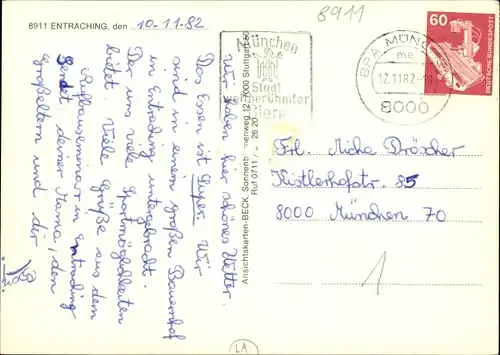 8911 ENTRACHING, den 10-11-82
8911
Wir haben hier schönes Wetter.
Das Essen ist Super. Wir
sind in einem großen Bauernhof
in Entraching untergebracht.
Der uns viele Sportmöglichkeiten
bietet. Viele Grüße aus dem
Aufbauseminar in Entraching
Sendet deiner Mama, den
Großeltern und dir
Ansichtskarten-BECK, Sonnenblumenweg 12, 7000 Stuttgart 60
Ruf 0711 / 5 26 20
München
Stadt
berühmter
Biere
BPA MÜNCHEN
me
12.11.82
8000
60
DEUTSCHE BUNDESPOST
Frl. Micha Dröscher
Kistlerhofstr. 85
8000 München 70
1
LA